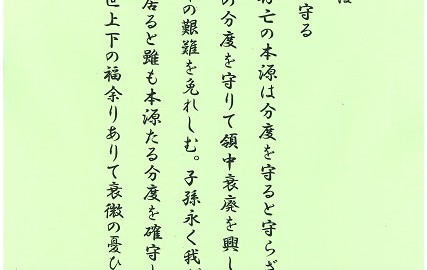 守る
亡の本源は分度を守ると守らざ
の分度を守りて領中衰廃を興し
の艱難を免れしむ。子孫永く我
居ると雖も本源たる分度を確守し
上下の福余りありて衰微の憂ひ